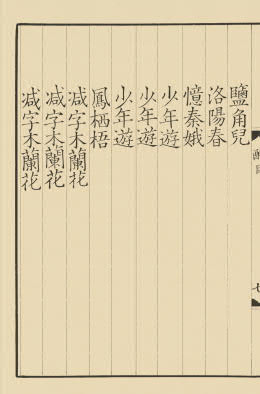 鹽角兒
洛陽春
憶秦娥
少年遊
少年遊
少年遊
鳳栖梧
减字木蘭花
减字木蘭花
减字木蘭花